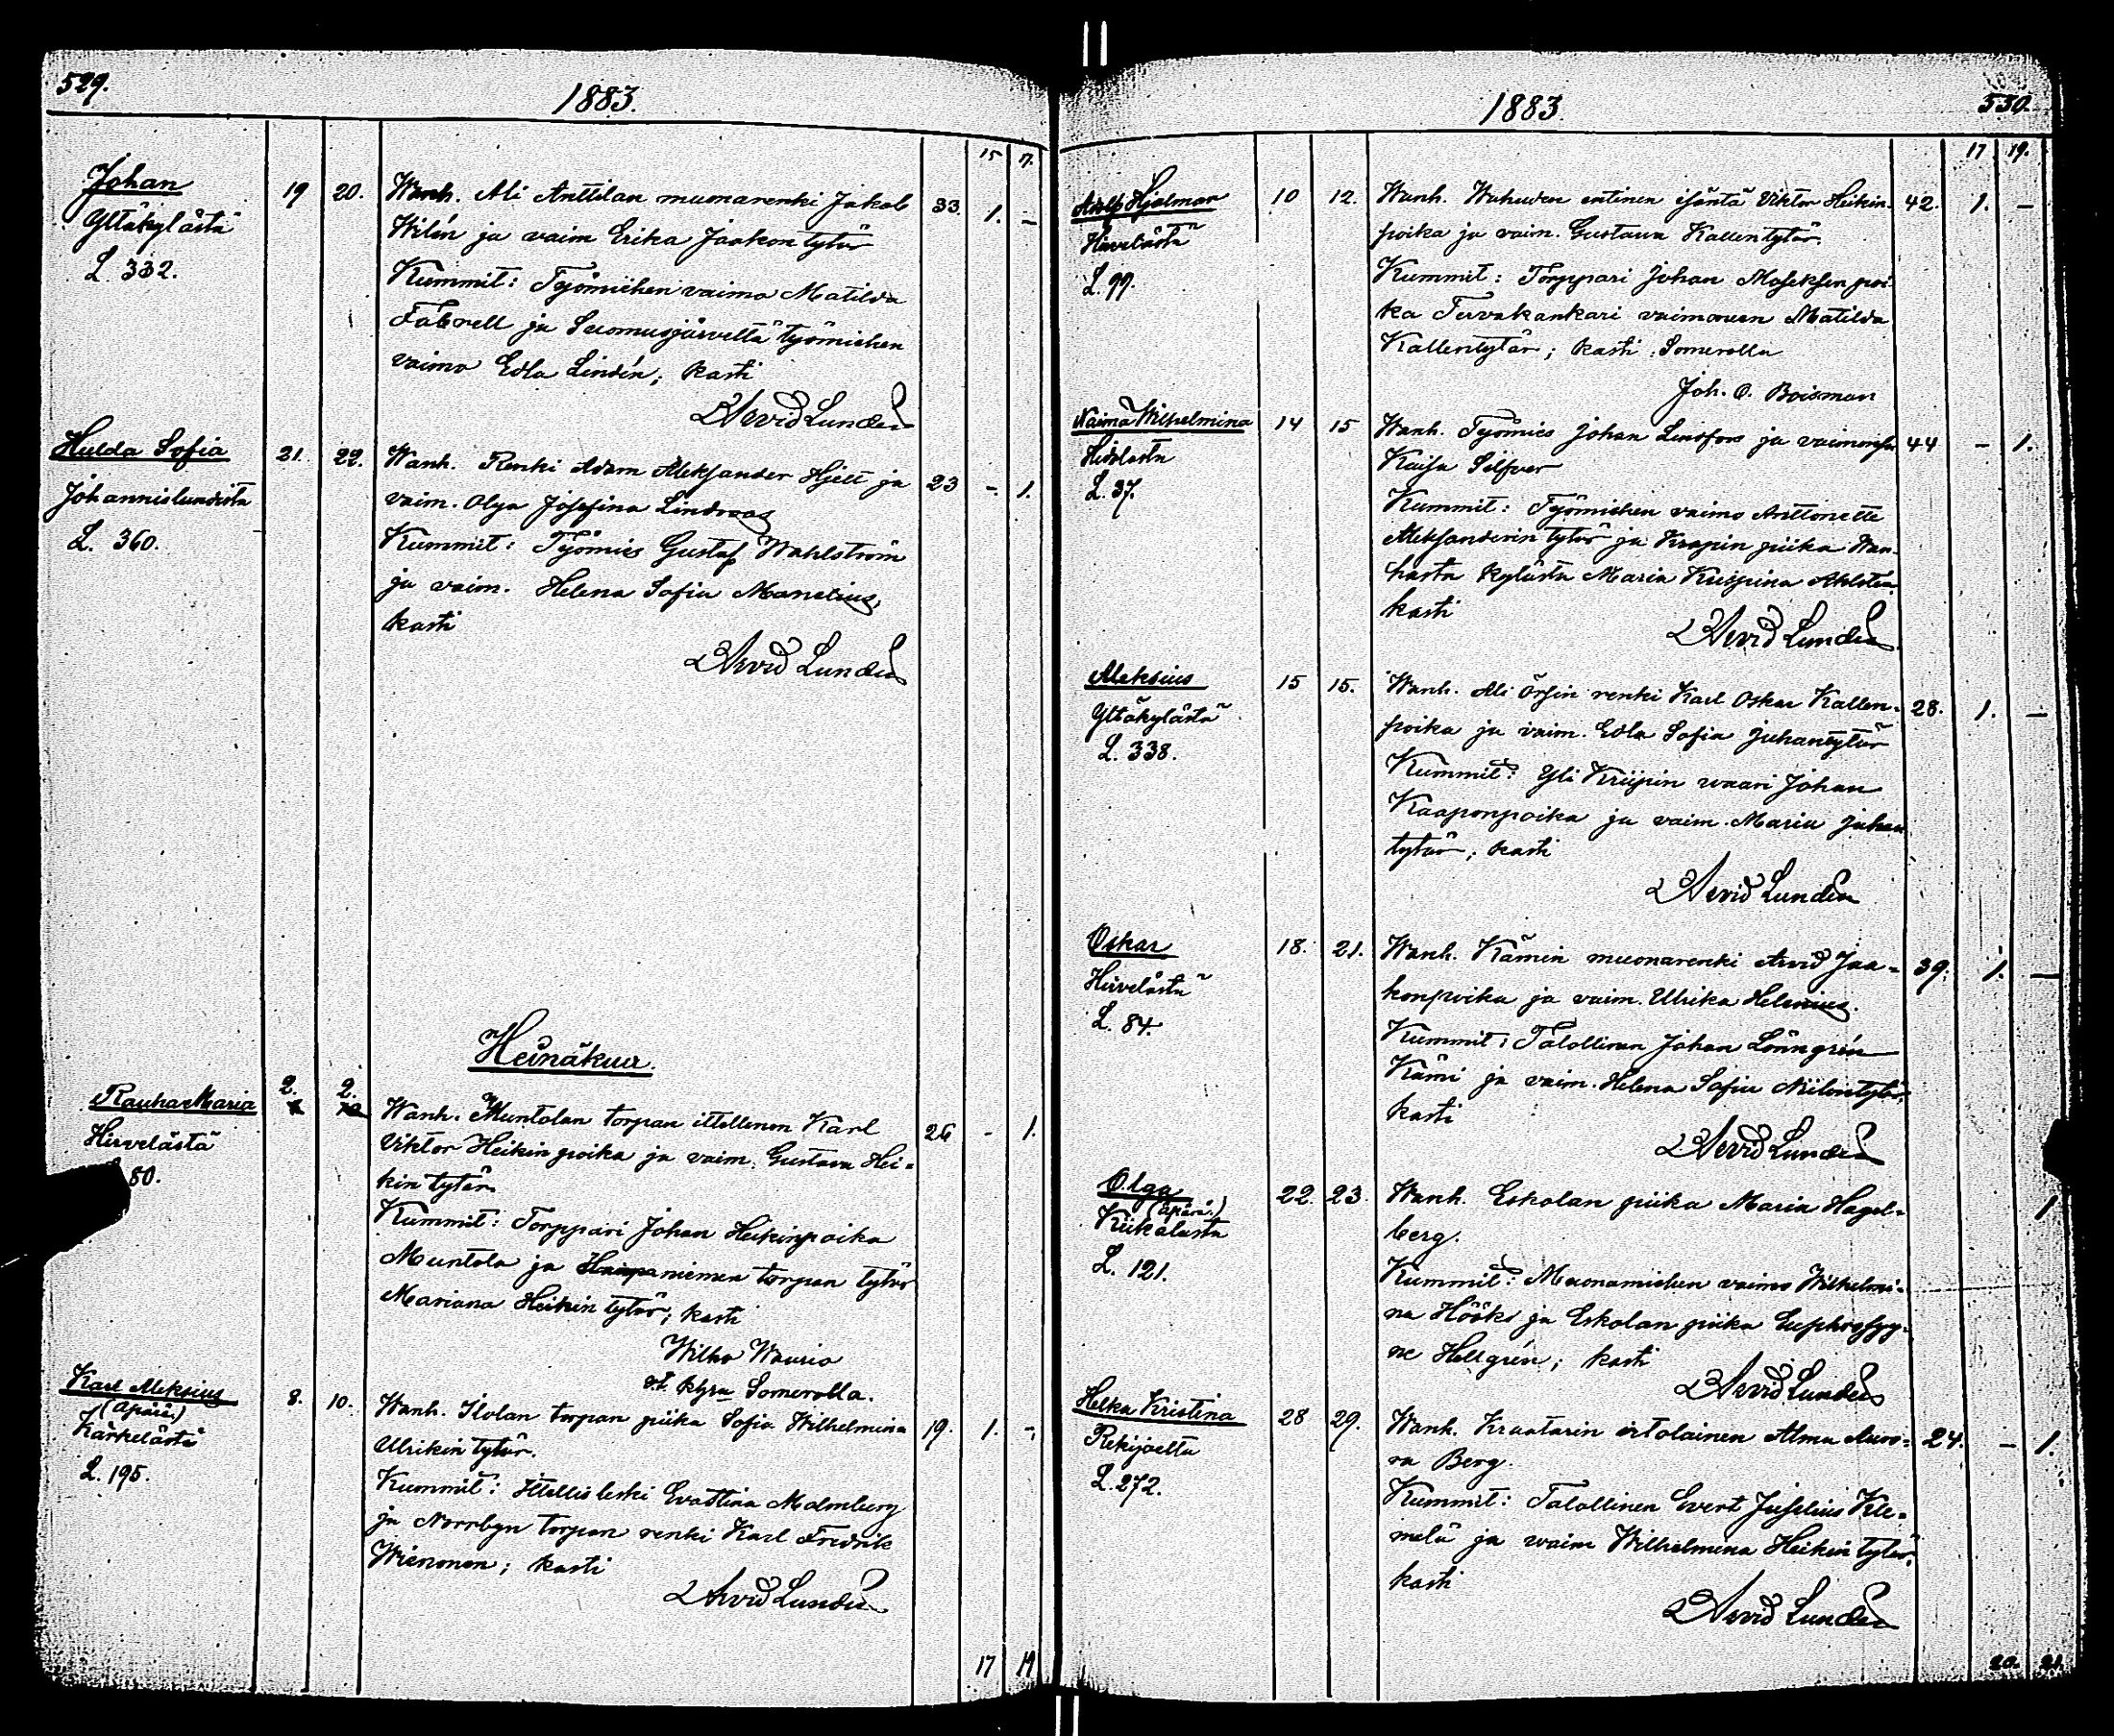 529.
1883.
15 7.
Johan
Yltäkylästä
L. 332.
19 20.
Wanh. Ali Anttilan muonarenki Jakob
Wilén ja vaim Erika Jaakontytär
Kummit: Työmiehen vaimo Matilda
ja Suomusjärveltä työmiehen
vaimo Edla Lindén; kasti
Arvid Lundén
33. 1. -
Hulda Sofia
Johannislundista
L. 360.
21. 22.
Wanh. Renki Adam Aleksander Hjelt ja
vaim. Olga Josefina Lindroos
Kummit: Työmies Gustaf Wahlström
ja vaim. Helena Sofia Manelius,
kasti
Arvid Lundén
23 -. 1.
Heinäkuu.
Rauha Maria
Hirvelästä
80.
2. 2.
Wanh. Muntolan torpan ittellinen Karl
Viktor Heikinpoika ja vaim. Gustava Hei-
kintytär
Kummit: Torppari Johan Heikinpoika
Muntola ja Haapaniemen torpan tytär
Mariana Heikintytär; kasti
Wilho Waurio
v.t. klra Somerolla.
26 - 1.
Karl Aleksius
(Äpärä.)
Kärkelästä
L. 195.
8. 10.
Wanh. Ilolan torpan piika Sofia Wilhelmina
Ulrikintytär.
Kummit: Itellisleski Eva Stina Malmberg
ja Norrbyn torpan renki Karl Fredrik
Wienonen; kasti
Arvid Lundén
19. 1. -.
17 19
1883.
530.
17 19.
Adolf Hjalmar
Hirvelästä
L. 99.
10 12.
Wanh. Wahuden entinen isäntä Viktor Heikin-
poika ja vaim. Gustava Kallentytär.
Kummit: Torppari Johan Moseksen poi-
ka Tervakankari vaimoneen Matilda
Kallentytär; kasti Somerolla
Joh. O. Boisman
42. 1. -
Naima Wilhelmina
L. 37.
14 15
Wanh. Työmies Johan Lindfors ja vaimonsa
Kaisa Silfver
Kummit: Työmiehen vaimo Anttonette
Aleksanderintytär ja piika Wan-
hasta kylästä Maria Krispina Ahlstén
kasti
Arvid Lundén
44 - 1.
Aleksius
Yltäkylästä
L. 338.
15 15.
Wanh. Ali Örsin renki Karl Oskar Kallen-
poika ja vaim. Edla Sofia Juhantytär
Kummit: Yli Kriipin vaari Johan
Kaaponpoika ja vaim. Maria Juhan
tytär; kasti
Arvid Lundén
28. 1. -
Oskar
Hirvelästä
L. 84.
18. 21.
Wanh. Kämin muonarenki Arvid Jaa-
konpoika ja vaim. Ulrika Helenius.
Kummit: Talollinen Johan Lönngrén
Kämi ja vaim. Helena Sofia Niilontytär,
kasti
Arvid Lundén
39. 1. -
Olga
(äpärä.)
Kiikalasta
L. 121.
22. 23.
Wanh. Eskolan piika Maria Hagel-
berg.
Kummit: Muonamiehen vaimo Wilhelmi-
na Höök ja Eskolan piika Euphrosyy-
ne Hellgrén; kasti
Arvid Lundén
1
Helka Kristina
Rekijoelta
L. 272.
28 29.
Wanh. Kraatarin irtolainen Alma Auro-
ra Berg.
Kummit: Talollinen Evert Juselius Kle-
melä ja vaim Wilhelmina Heikintytär,
kasti
Arvid Lundén
24. - 1.
20. 21